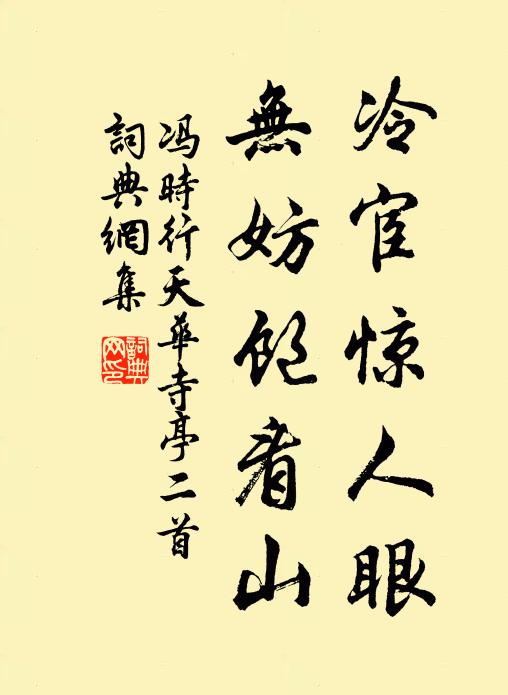 冷宦惊人眼
無妨飽看山
冯時行天華寺亭二首
詞典網集
詞典
网印